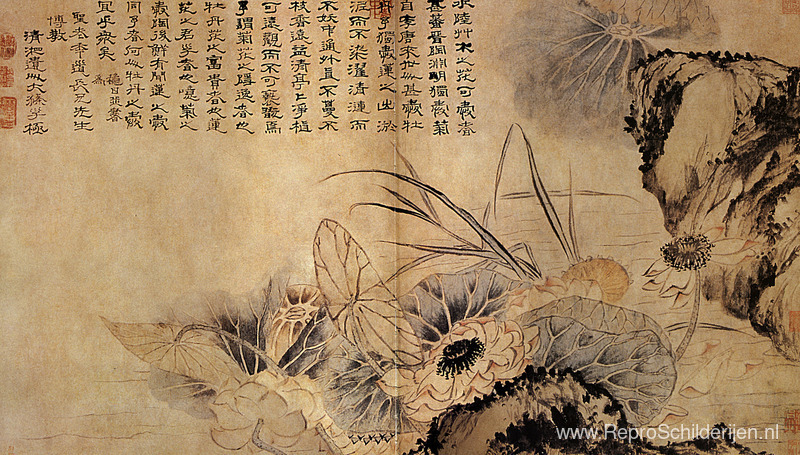 水陸艸木之花可愛者
甚蕃晉陶淵明獨愛菊
自李唐來世人甚愛牡
丹予獨愛蓮之出淤
泥而不染濯清漣而
不妖中通外直不蔓不
枝香遠益清亭亭淨植
可遠觀而不可褻翫焉
予謂菊花之隱逸者也
牡丹花之富貴者也蓮
花之君子者也噫菊之
愛陶後鮮有聞蓮之愛
同予者何人牡丹之愛
宜乎衆矣
道長兄先生
博教
清湘遺人大滌子極
www.ReproSchilderijen.nl